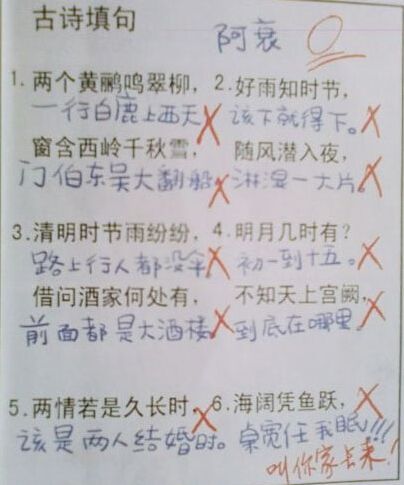 古诗填句 阿衰 0
1. 两个黄鹂鸣翠柳， 2. 好雨知时节，
一行白鹿上西天 该下就得下。
窗含西岭千秋雪， 随风潜入夜，
门伯东吴大翻船 淋湿一大片。
3. 清明时节雨纷纷， 4. 明月几时有？
路上行人都没伞 初一到十五。
借问酒家何处有， 不知天上宫阙，
前面都是大酒楼 到底在哪里
5. 两情若是久长时， 6. 海阔凭鱼跃，
该是两人结婚时。 桌宽任我眠!!!
叫你家长来！